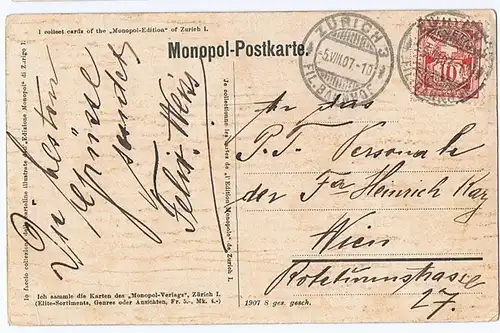 I collect cards of the „Monopol-Edition" of Zurich I.
Monopol-Postkarte.
ZÜRICH 3
-5.VIII.07.-10
FIL. BAHNHOF
10
Die besten
Grüsse
sendet
Felix Weiss
An das
P.T. Personale
der Fa Heinrich
Wien
Roteturmstrasse
27.
Io faccio collezione delle cartoline illustrate della „Edizione Monopol" di Zurigo I.
Je collectionne les cartes de l'„Edition Monopole" de Zurich I.
Ich sammle die Karten des „Monopol-Verlags", Zürich I.
(Elite-Sortiments, Genres oder Ansichten, Fr. 5.-, Mk. 4.-)
1907 S ges. gesch.